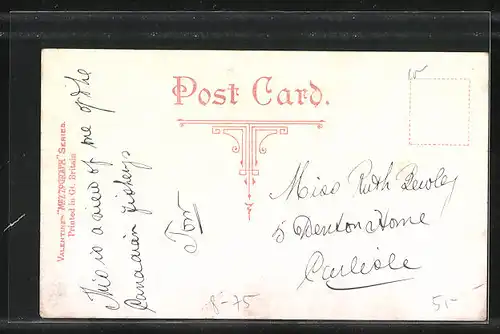 Post Card.
VALENTINE'S "MEZZOGRAPH" SERIES.
Printed in Gt. Britain
This is a view of one of the
Canadian
Tom
Miss Ruth Bewley
5 Denton Home
Carlisle
8-75
55-